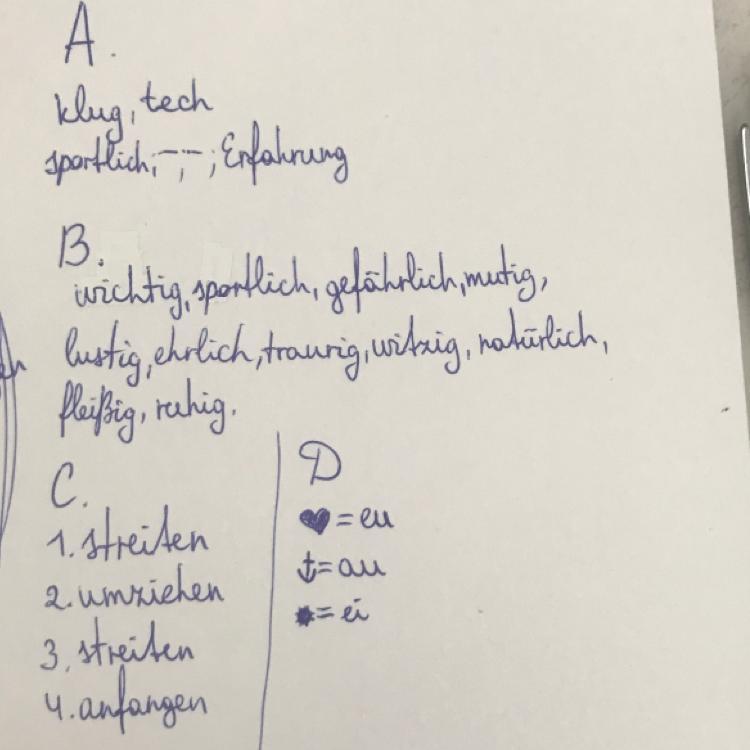 A.
klug, tech
sportlich, -,- ; Erfahrung
B.
wichtig, sportlich, gefährlich, mutig,
lustig, ehrlich, traurig, witzig, natürlich,
fleißig, ruhig.
C.
1. streiten
2. umziehen
3. streiten
4. anfangen
D
♥ = eu
⚓ = au
✸ = ei